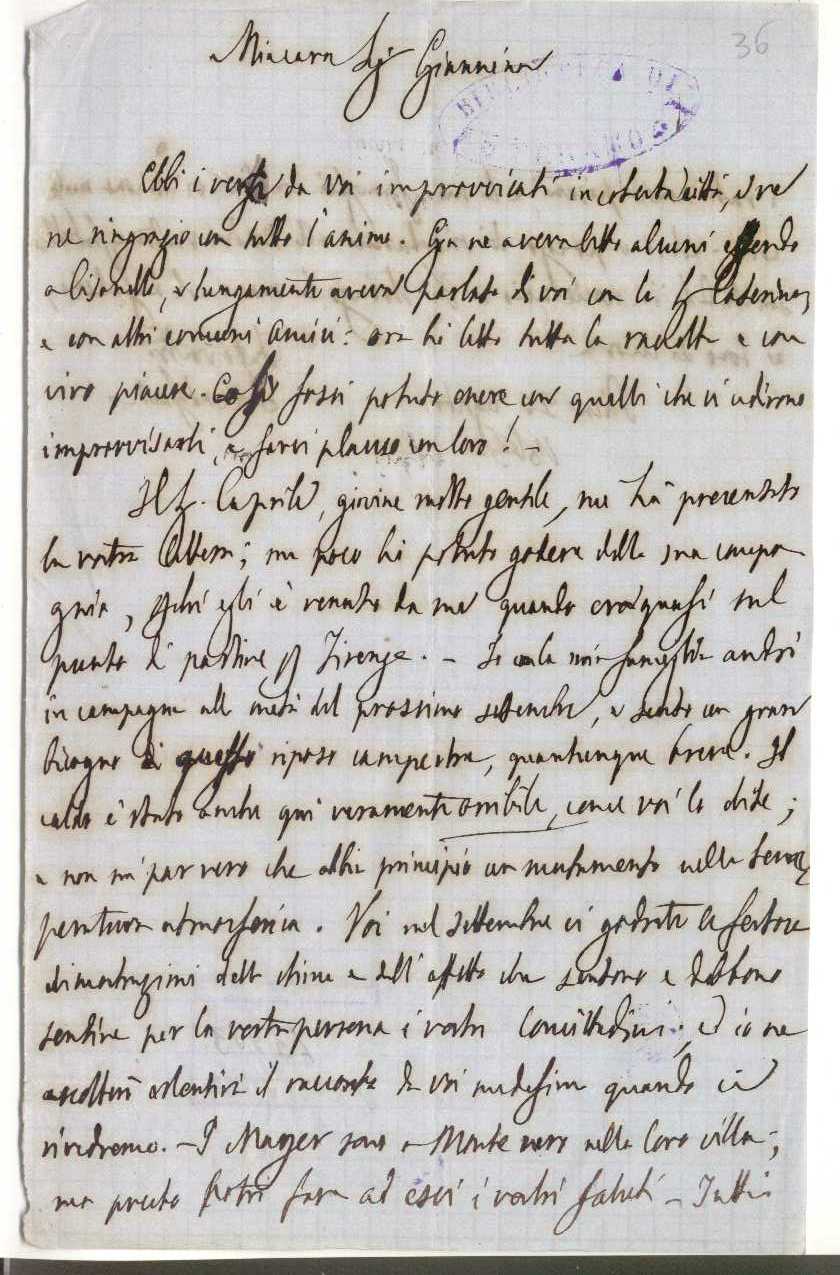 Mia cara Sig Giannina
36
BIBLIOTECA DI
TERAMO
Ebbi i versi da voi improvvisati in cotesta città, e ve
ne ringrazio con tutto l'animo. Già ne aveva letto alcuni essendo
a, e lungamente aveva parlato di voi con la Sig Caterina,
e con altri comuni amici: ora ho letto tutta la raccolta e con
vivo piacere. Così fossi potuto essere con quelli che vi udirono
improvvisarli, e farvi plauso con loro! –
Il Sig. Caprile, giovine molto gentile, me ha presentato
la vostra lettera; ma poco ho potuto godere della sua compa
gnia, egli è venuto da me quando era quasi sul
punto di partire p Firenze. – Io con la mia famiglia andrò
in campagna alla metà del prossimo settembre, e sento un gran
bisogno di questo riposo campestre, quantunque breve. Il
caldo è stato anche qui veramente orribile, come voi lo dite;
e non mi par vero che abbia principio un mutamento nella tem
peratura atmosferica. Voi nel settembre vi godrete le festose
dimostrazioni della stima e dell'affetto che sentono e debbono
sentire per la vostra persona i vostri Concittadini; ed io ne
ascolterò volentieri il racconto da voi medesima quando ci
rivedremo. – I Mayer sono a Monte nero nella loro villa;
ma presto potrò fare ad essi i vostri saluti – Tutti